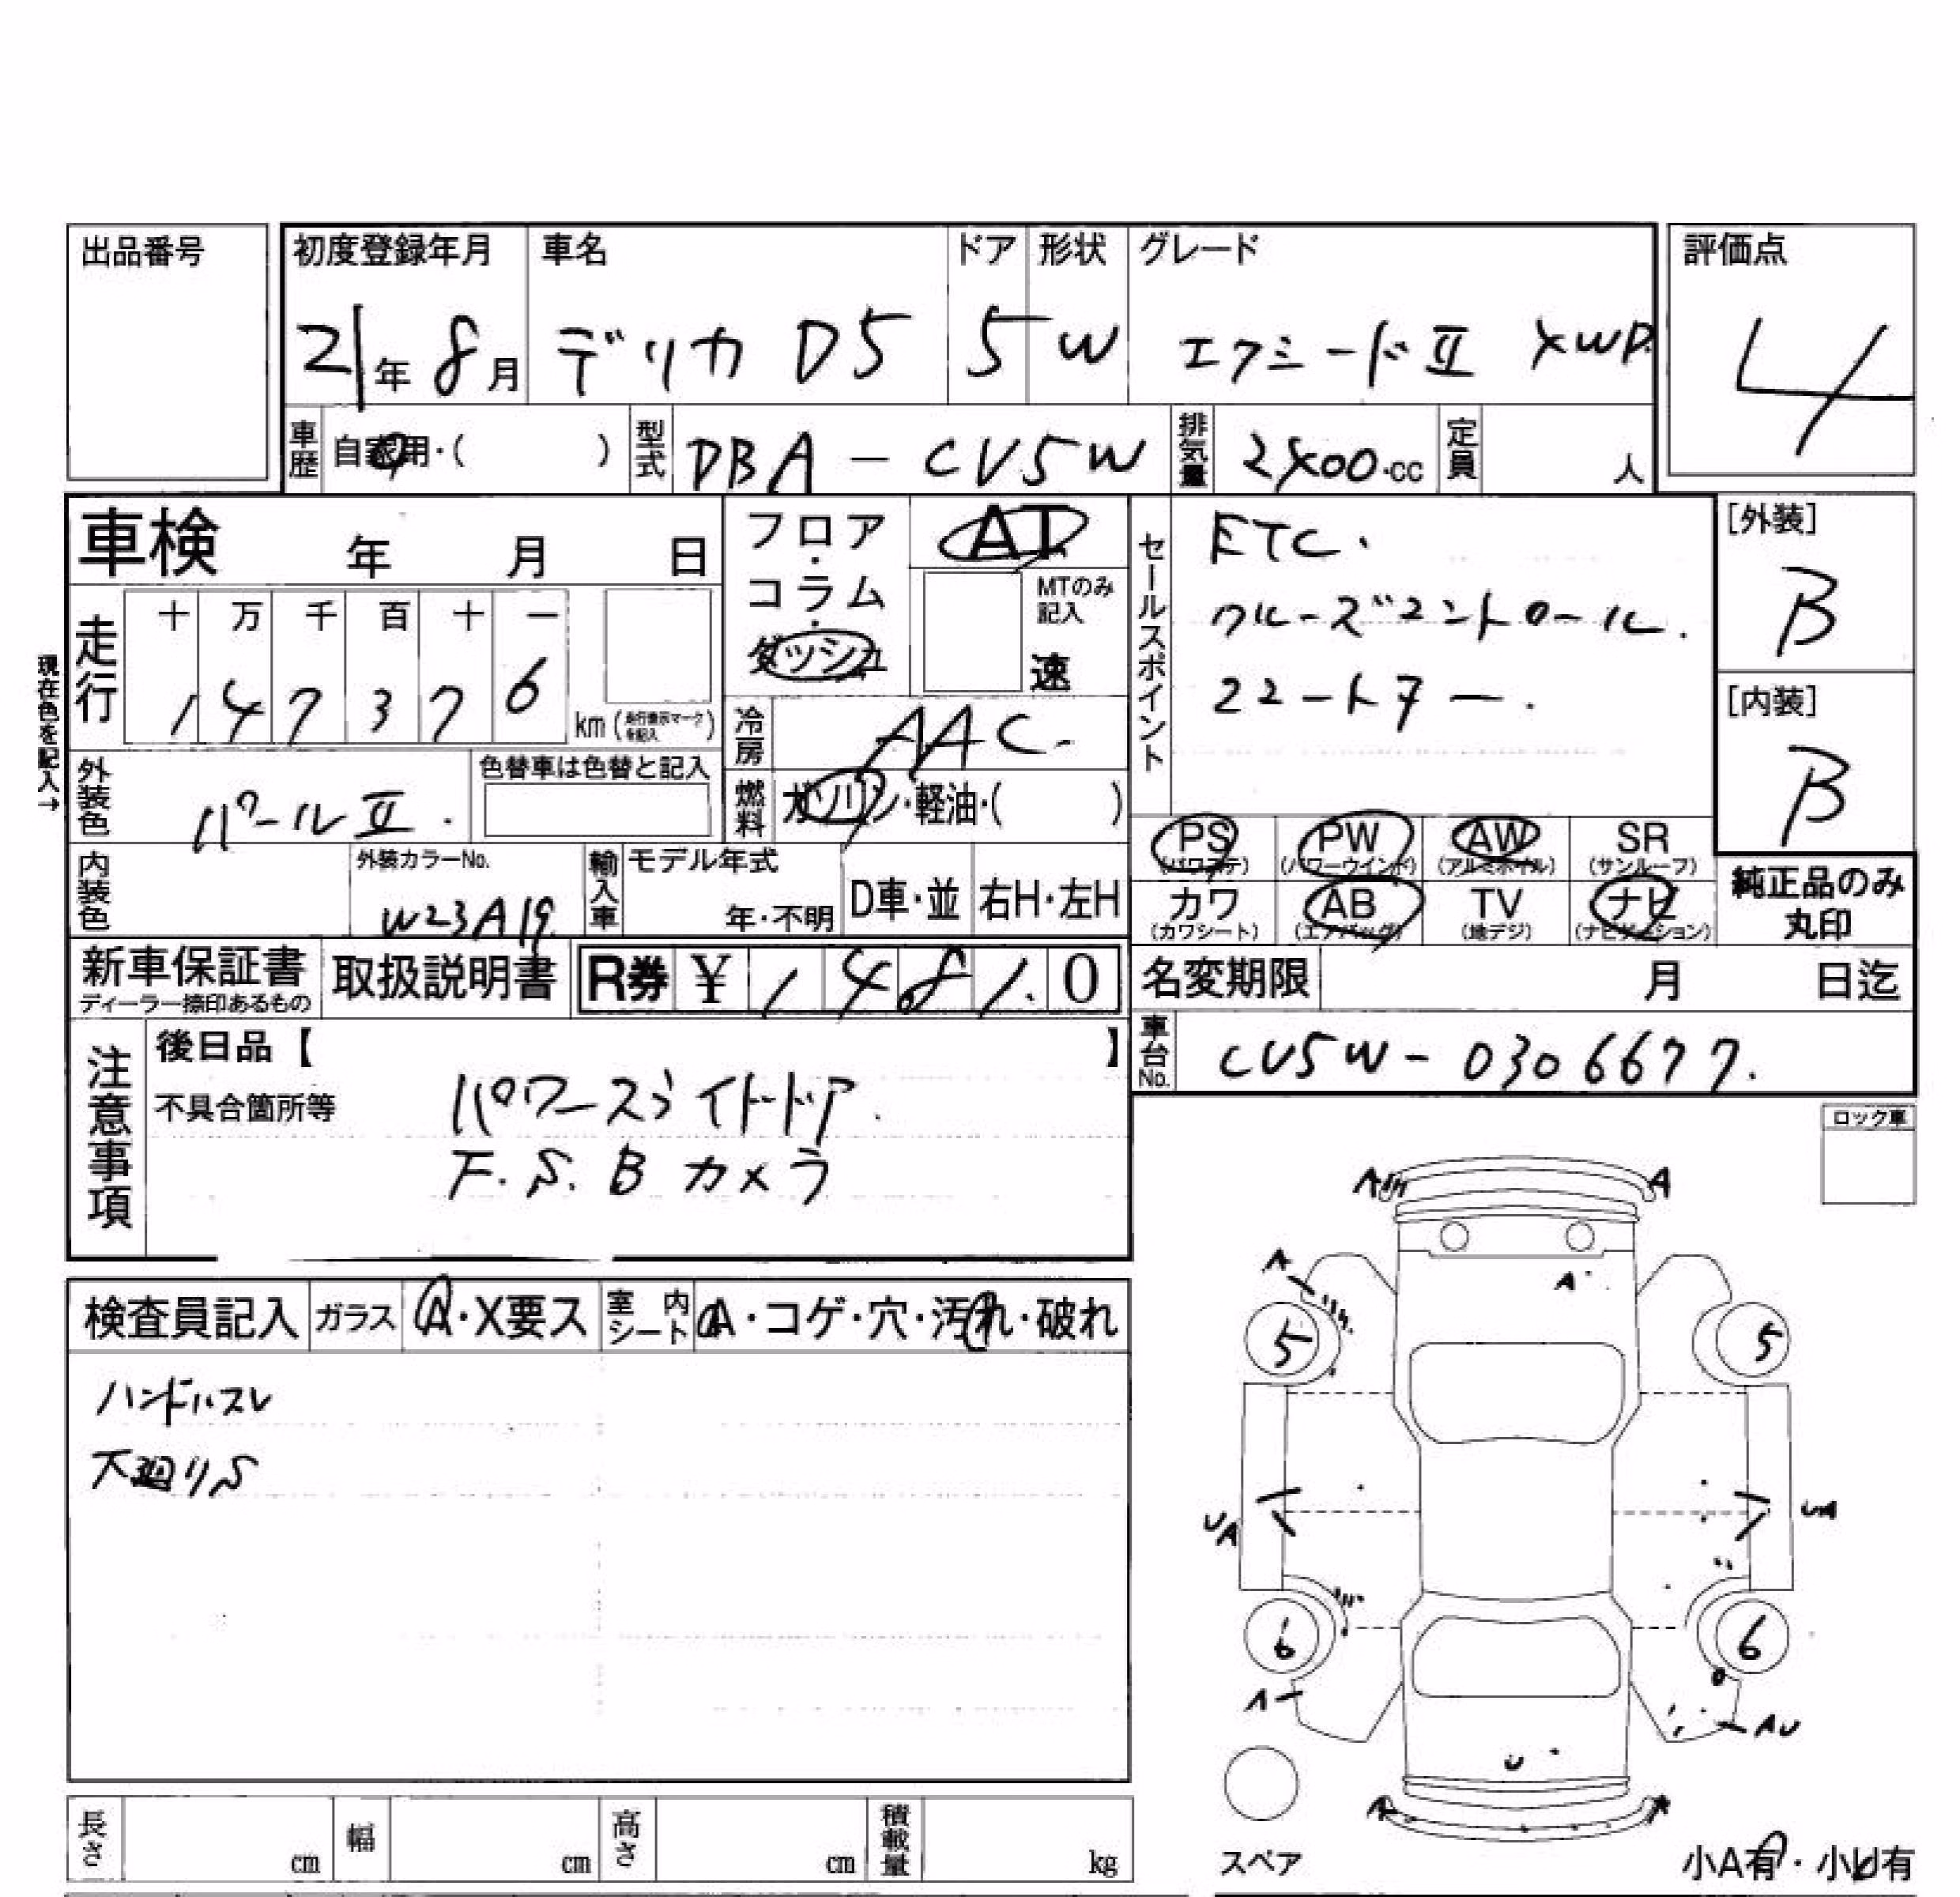 出品番号
初度登録年月 車名 ドア 形状 グレード
21年 8月 デリカ D5 5 W エクシードⅡ 4WD
評価点
4
車歴 自家用・( ) 型式 DBA-CV5W 排気量 2400.cc 定員 人
車検 年 月 日
フロア・コラム・ダッシュ
AT
MTのみ記入
速
走行
十 万 千 百 十 一
1 4 7 3 7 6 km (走行表示マークを記入)
現在色を記入→
冷房 AAC.
燃料 ガソリン・軽油・( )
外装色 パールⅡ.
色替車は色替と記入
内装色
外装カラーNo.
W23A19
輸入車 モデル年式 年・不明 D車・並 右H・左H
セールスポイント
ETC.
クルーズコントロール.
2ユートナー.
[外装]
B
[内装]
B
PS (パワステ) PW (パワーウインド) AW (アルミホイル) SR (サンルーフ)
カワ (カワシート) AB (エアバッグ) TV (地デジ) ナビ (ナビゲーション)
純正品のみ
丸印
新車保証書
ディーラー捺印あるもの
取扱説明書
R券 ¥ 1 4 8 1 0
名変期限 月 日迄
車台No. CV5W-0306677.
注意事項
後日品【 】
不具合箇所等 パワースライドドア.
F.S.Bカメラ
ロック車
検査員記入 ガラス A・X要ス 室内シート A・コゲ・穴・汚れ・破れ
ハンドルスレ
下廻りS
A A
A A
5 5
UA UA
6 6
A AU
U
A A
スペア
小A有・小U有
長さ cm 幅 cm 高さ cm 積載量 kg